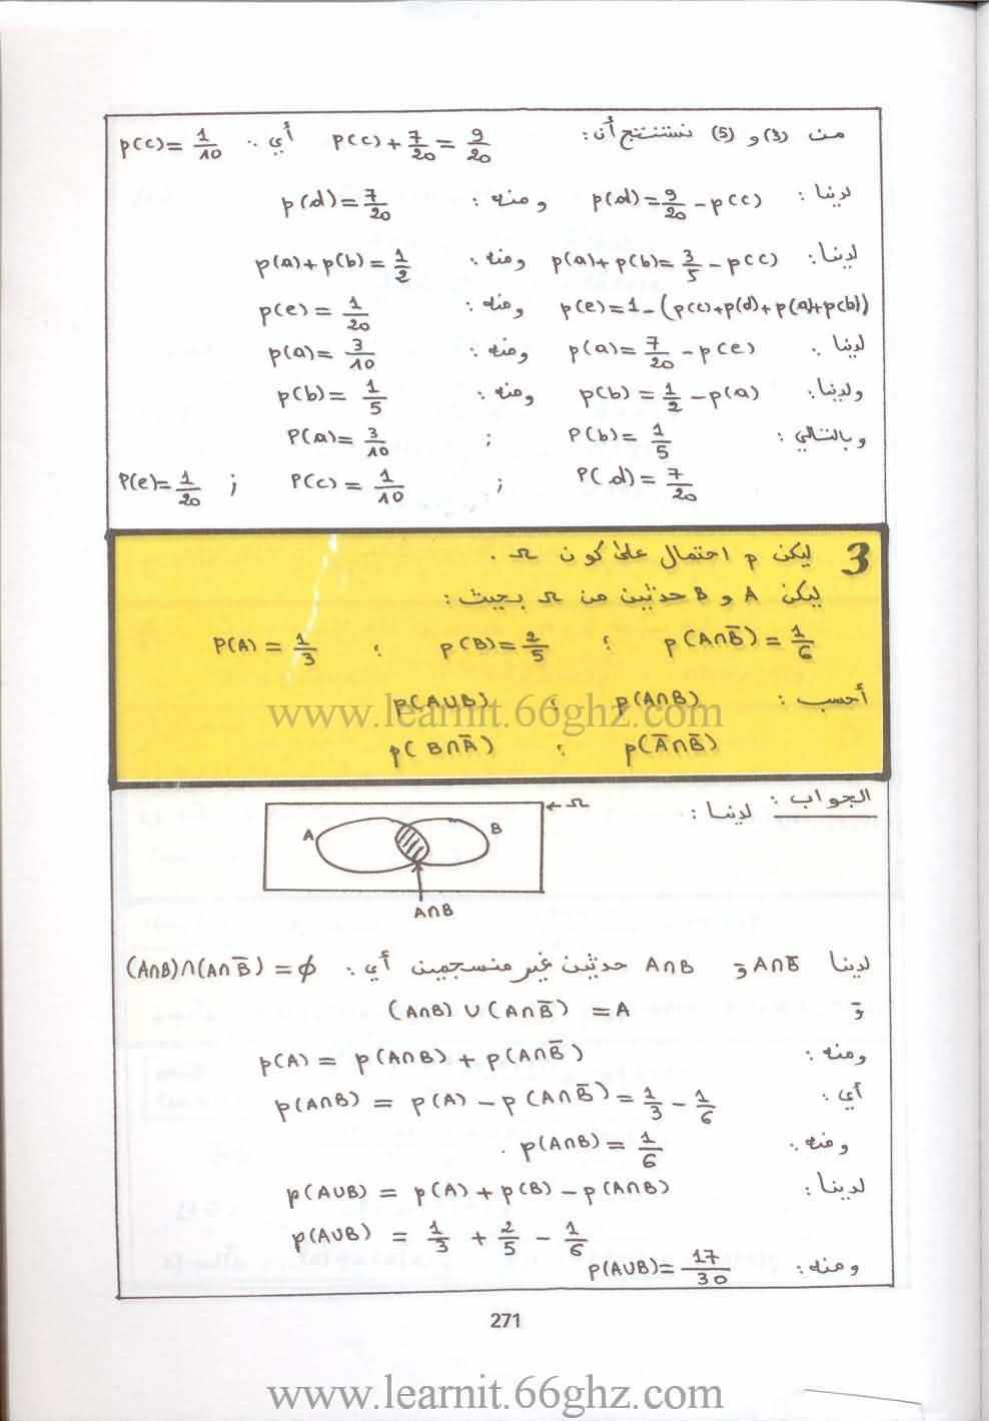 من (3) و (5) نستنتج أن: p(c)+7/20=9/20 أي: p(c)=1/10
لدينا: p(d)=9/20-p(c) ومنه: p(d)=7/20
لدينا: p(a)+p(b)=3/5-p(c) ومنه: p(a)+p(b)=1/2
p(e)=1-(p(c)+p(d)+p(a)+p(b)) ومنه: p(e)=1/20
لدينا: p(a)=7/20-p(e) ومنه: p(a)=3/10
ولدينا: p(b)=1/2-p(a) ومنه: p(b)=1/5
وبالتالي: P(b)=1/5 ; P(a)=3/10
P(d)=7/20 ; P(c)=1/10 ; P(e)=1/20
3 ليكن p احتمال على كون Ω.
ليكن A و B حدثين من Ω بحيث:
p(A∩B̅)=1/6 ؛ p(B)=2/5 ؛ P(A)=1/3
أحسب: p(A∩B) ؛ p(A∪B)
www.learnit.66ghz.com
p(A̅∩B̅) ؛ p(B∩A̅)
الجواب: لدينا:
←Ω
A B
A∩B
لدينا A∩B̅ و A∩B حدثين غير منسجمين أي: (A∩B)∩(A∩B̅)=ϕ
و (A∩B)∪(A∩B̅)=A
ومنه: p(A)=p(A∩B)+p(A∩B̅)
أي: p(A∩B)=p(A)-p(A∩B̅)=1/3-1/6
ومنه: p(A∩B)=1/6.
لدينا: p(A∪B)=p(A)+p(B)-p(A∩B)
p(A∪B)=1/3+2/5-1/6
ومنه: p(A∪B)=17/30
271
www.learnit.66ghz.com